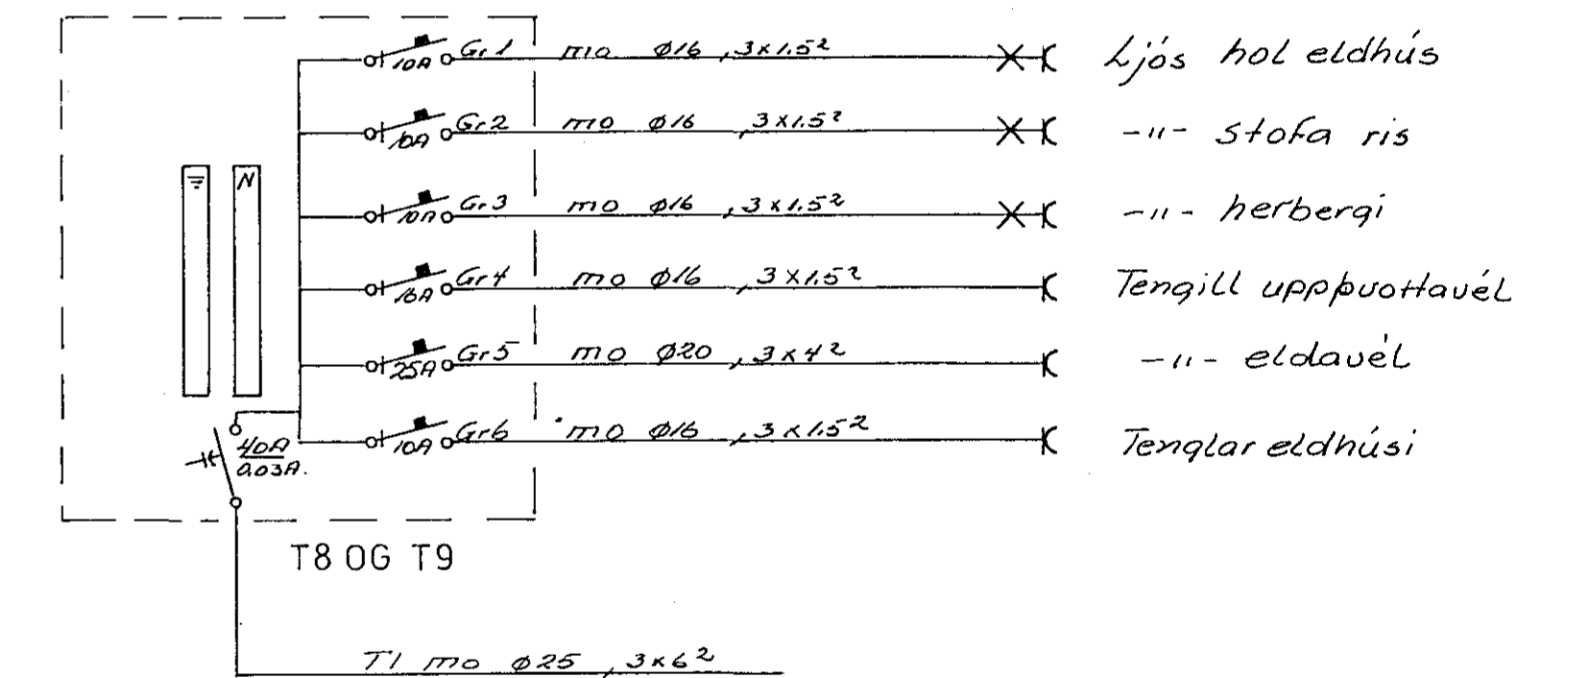 10A Gr1 mo ø16, 3x1.5² Ljós hol eldhús
10A Gr2 mo ø16, 3x1.5² -"- stofa ris
10A Gr3 mo ø16, 3x1.5² -"- herbergi
N
Gr4 mo ø16, 3x1.5² Tengill uppþvottavél
25A Gr5 mo ø20, 3x4² -"- eldavél
10A Gr6 mo ø16, 3x1.5² Tenglar eldhúsi
40A
0.03A.
T8 OG T9
T1 mo ø25, 3x6²